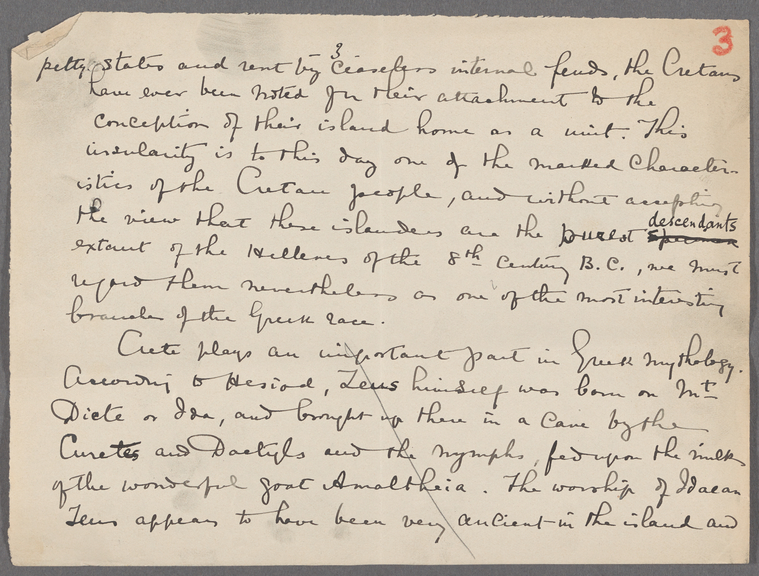 3
3
petty states and rent by ceaseless internal feuds, the Cretans
have ever been noted for their attachment to the
conception of their island home as a unit. This
insularity is to this day one of the marked character-
istics of the Cretan people, and without accepting
the view that these islanders are the purest descendants
extant of the Hellenes of the 8th Century B.C., we must
regard them nevertheless as one of the most interesting
branches of the Greek race.
Crete plays an important part in Greek mythology.
According to Hesiod, Zeus himself was born on Mt
Dicte or Ida, and brought up there in a cave by the
Curetes and Dactyls and the nymphs, fed upon the milk
of the wonderful goat Amaltheia. The worship of Idaean
Zeus appears to have been very ancient in the island and